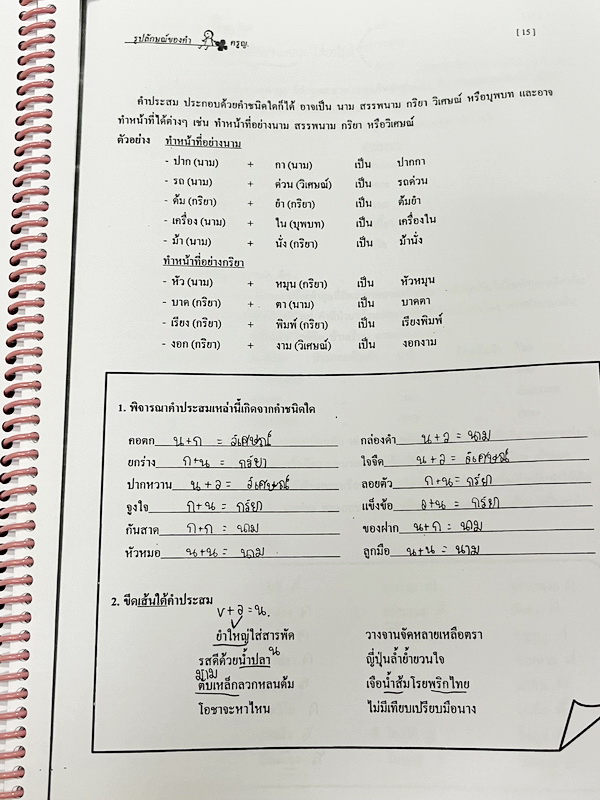 รูปลักษณ์ของคำ ครูญ. [ 15 ]
คำประสม ประกอบด้วยคำชนิดใดก็ได้ อาจเป็น นาม สรรพนาม กริยา วิเศษณ์ หรือบุพบท และอาจ
ทำหน้าที่ได้ต่างๆ เช่น ทำหน้าที่อย่างนาม สรรพนาม กริยา หรือวิเศษณ์
ตัวอย่าง ทำหน้าที่อย่างนาม
- ปาก (นาม) + กา (นาม) เป็น ปากกา
- รถ (นาม) + ด่วน (วิเศษณ์) เป็น รถด่วน
- ต้ม (กริยา) + ยำ (กริยา) เป็น ต้มยำ
- เครื่อง (นาม) + ใน (บุพบท) เป็น เครื่องใน
- ม้า (นาม) + นั่ง (กริยา) เป็น ม้านั่ง
ทำหน้าที่อย่างกริยา
- หัว (นาม) + หมุน (กริยา) เป็น หัวหมุน
- บาด (กริยา) + ตา (นาม) เป็น บาดตา
- เรียง (กริยา) + พิมพ์ (กริยา) เป็น เรียงพิมพ์
- งอก (กริยา) + งาม (วิเศษณ์) เป็น งอกงาม
1. พิจารณาคำประสมเหล่านี้เกิดจากคำชนิดใด
คอตก น+ก = วิเศษณ์ กล่องดำ น+ว = นาม
ยกร่าง ก+น = กริยา ใจจืด น+ว = วิเศษณ์
ปากหวาน น+ว = วิเศษณ์ ลอยตัว ก+น = กริยา
จูงใจ ก+น = กริยา แข็งข้อ ว+น = กริยา
กันสาด ก+ก = นาม ของฝาก น+ก = นาม
หัวหมอ น+น = นาม ลูกมือ น+น = นาม
2. ขีดเส้นใต้คำประสม
v+ว = น.
ยำใหญ่ใส่สารพัด วางจานจัดหลายเหลือตรา
รสดีด้วยน้ำปลา น ญี่ปุ่นล้ำย้ำยวนใจ
นาม
ตับเหล็กลวกหลนต้ม เจือน้ำส้มโรยพริกไทย
โอชาจะหาไหน ไม่มีเทียบเปรียบมือนาง